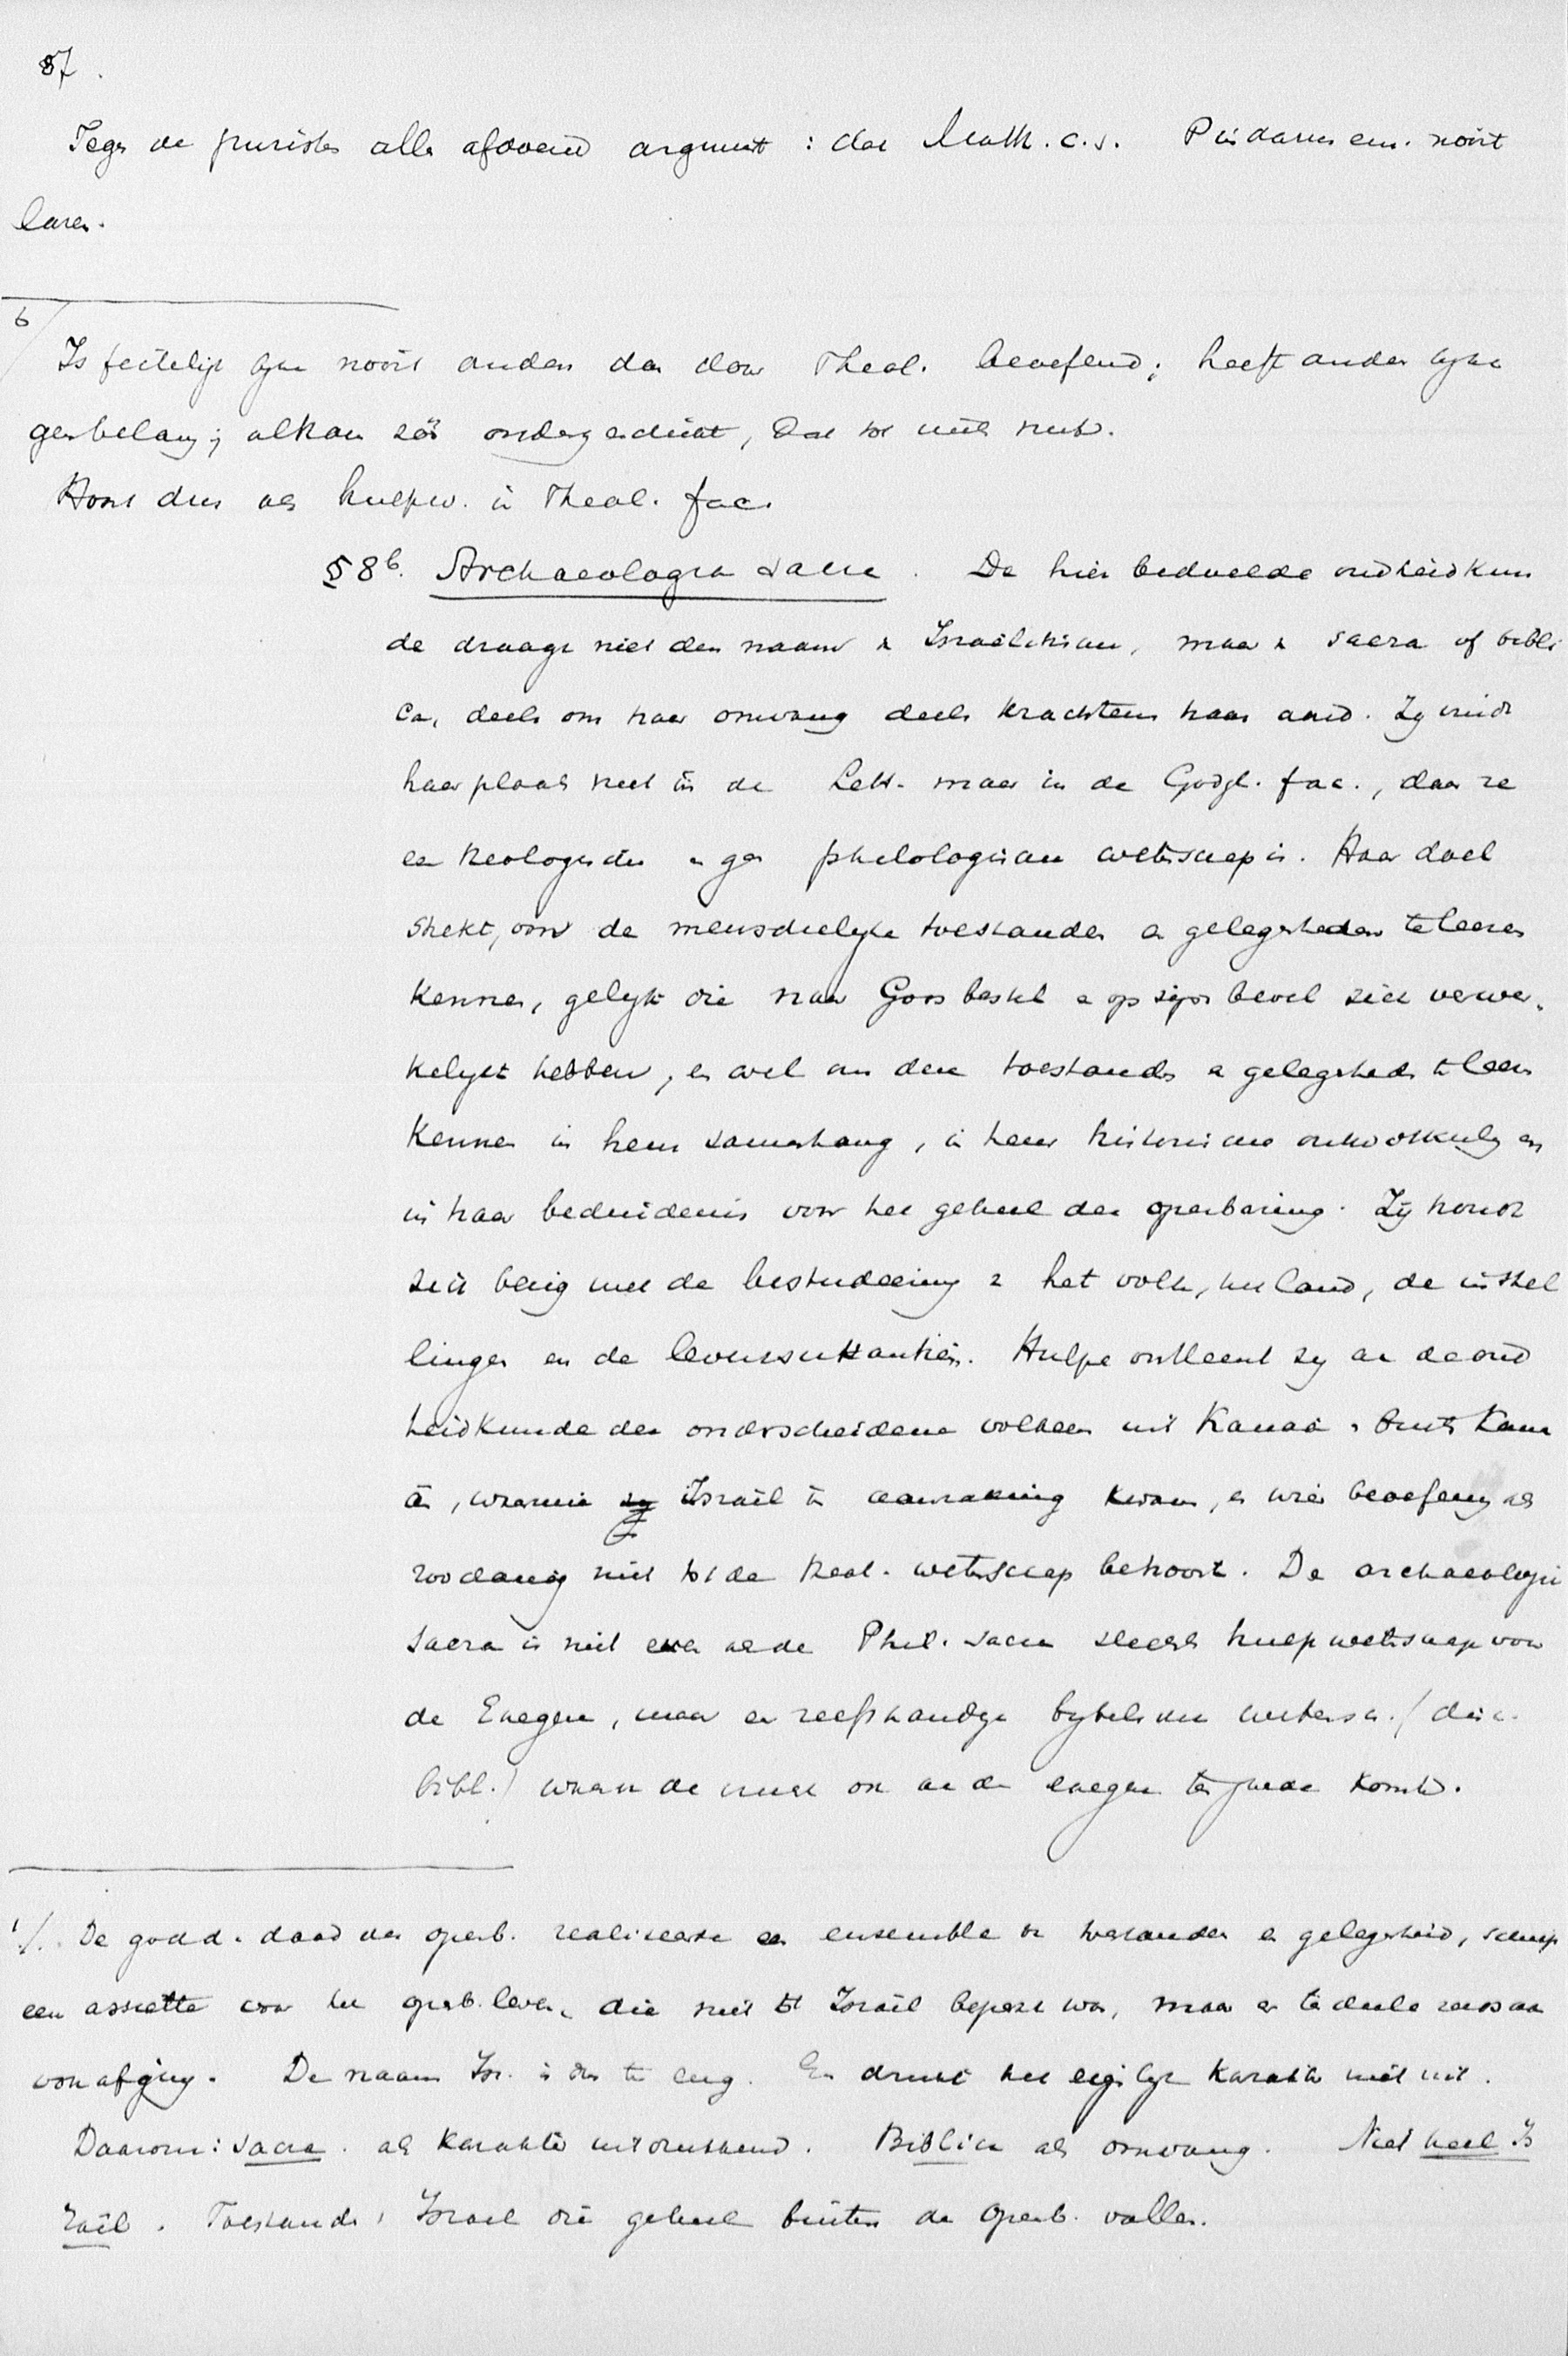 87.
Tegen de puristen alles afdoend argument : dat Matth. c.s. Pindarus enz. nooit
lazen.
6/
Is feitelijk bijna nooit anders dan door Theol. beoefend; heeft anders bijna
geen belang; alkan zóó ondergeschikt, dat tot niets
Hoort dus als hulpw. in Theol. fac.
§ 8b. Archaeologia sacra. De hier bedoelde oudheidkun
de draagt niet den naam v Israëlitische, maar v sacra of bibli
ca, deels om haar omvang deels krachtens haar aard. Zy vindt
haar plaats niet in de Lett. maar in de Godgel. fac., daar ze
een theologische en geen philologische wetenschap is. Haar doel
strekt, om de menschelyke toestanden en gelegenheden te leeren
kennen, gelyk die naar Gods bestel en op zijn bevel zich verwe-
kelykt hebben, en wel om deze toestanden en gelegenheden te leeren
kennen in hun samenhang, in hun historische ontwikkeling en
in haar beduidenis voor het geheel der openbaring. Zij houdt
zich bezig met de bestudeering v het volk, het land, de instel
lingen en de levensusantiën. Hulpe ontleent zy aan de oud
heidkunde der onderscheidene volkeren uit Kanaän en buiten Kana
än, waarmee zy Israël in aanraking kwam, en wier beoefening als
zoodanig niet tot de theol. wetenschap behoort. De archaeologie
sacra is niet even als de Phil. sacra slechts hulpwetenschap voor
de Exegese, maar een zelfstandige bybelsche wetensch. (disc.
bibl.) waarvan de vrucht ook aan de exegese ten goede komt.
1/. De godd. daad der openb. realiseerde een ensemble v toestanden en gelegenheid, schiep
een assiette voor het openb. leven, die niet tot Israël beperkt was, maar er ten deele zelfs aan
vooraf ging. De naam Isr. is dus te eng. En drukt het eigenlyk karakter niet uit.
Daarom: sacra. als karakter uitdrukkend. Biblica als omvang. Niet heel Is
raël. Toestanden i Israel die geheel buiten de openb. vallen.